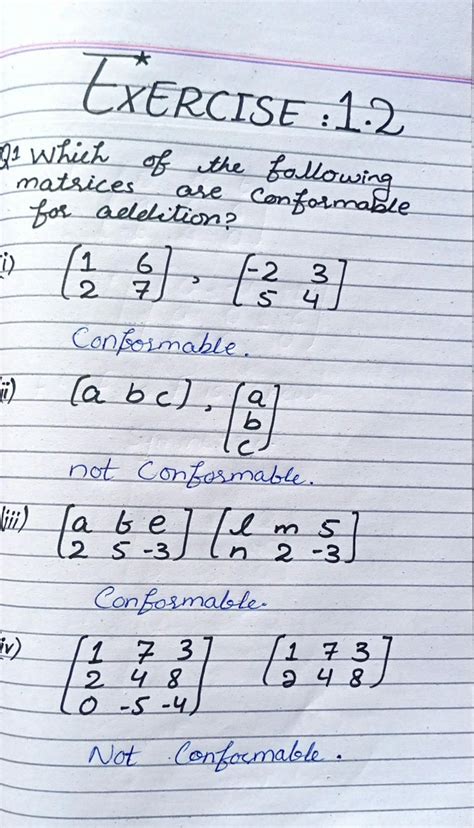 EXERCISE : 1.2
Q1 Which of the following
matrices are conformable
for addition?
i) [1 6] , [-2 3]
[2 7] [5 4]
Conformable.
ii) [a b c] , [a]
[b]
[c]
not Conformable.
iii) [a b e] [l m 5]
[2 5 -3] [n 2 -3]
Conformable.
iv) [1 7 3] [1 7 3]
[2 4 8] [2 4 8]
[0 -5 -4]
Not Conformable.